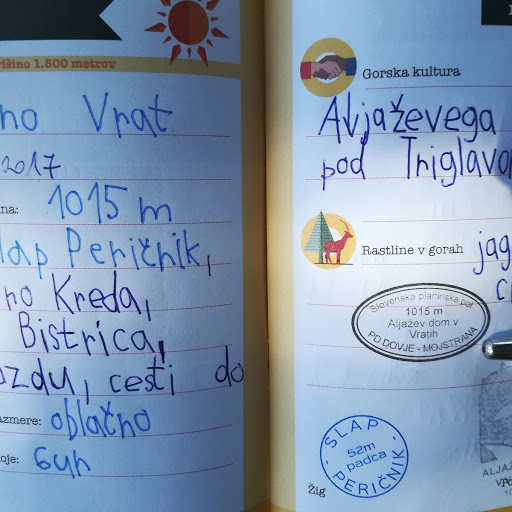 višino 1.500 metrov
no Vrat
2017
na: 1015 m
lap Peričnik,
no Kreda,
Bistrica,
ozdu, cesti do
azmere: oblačno
oje: 6uh
Gorska kultura
Aljaževega
pod Triglavo
Rastline v gorah jag
Slovenska planinska pot
1015 m
Aljažev dom v
Vratih
PD DOVJE - MOJSTRANA
SLAP
52m
padca
PERIČNIK
Žig
ALJAŽ